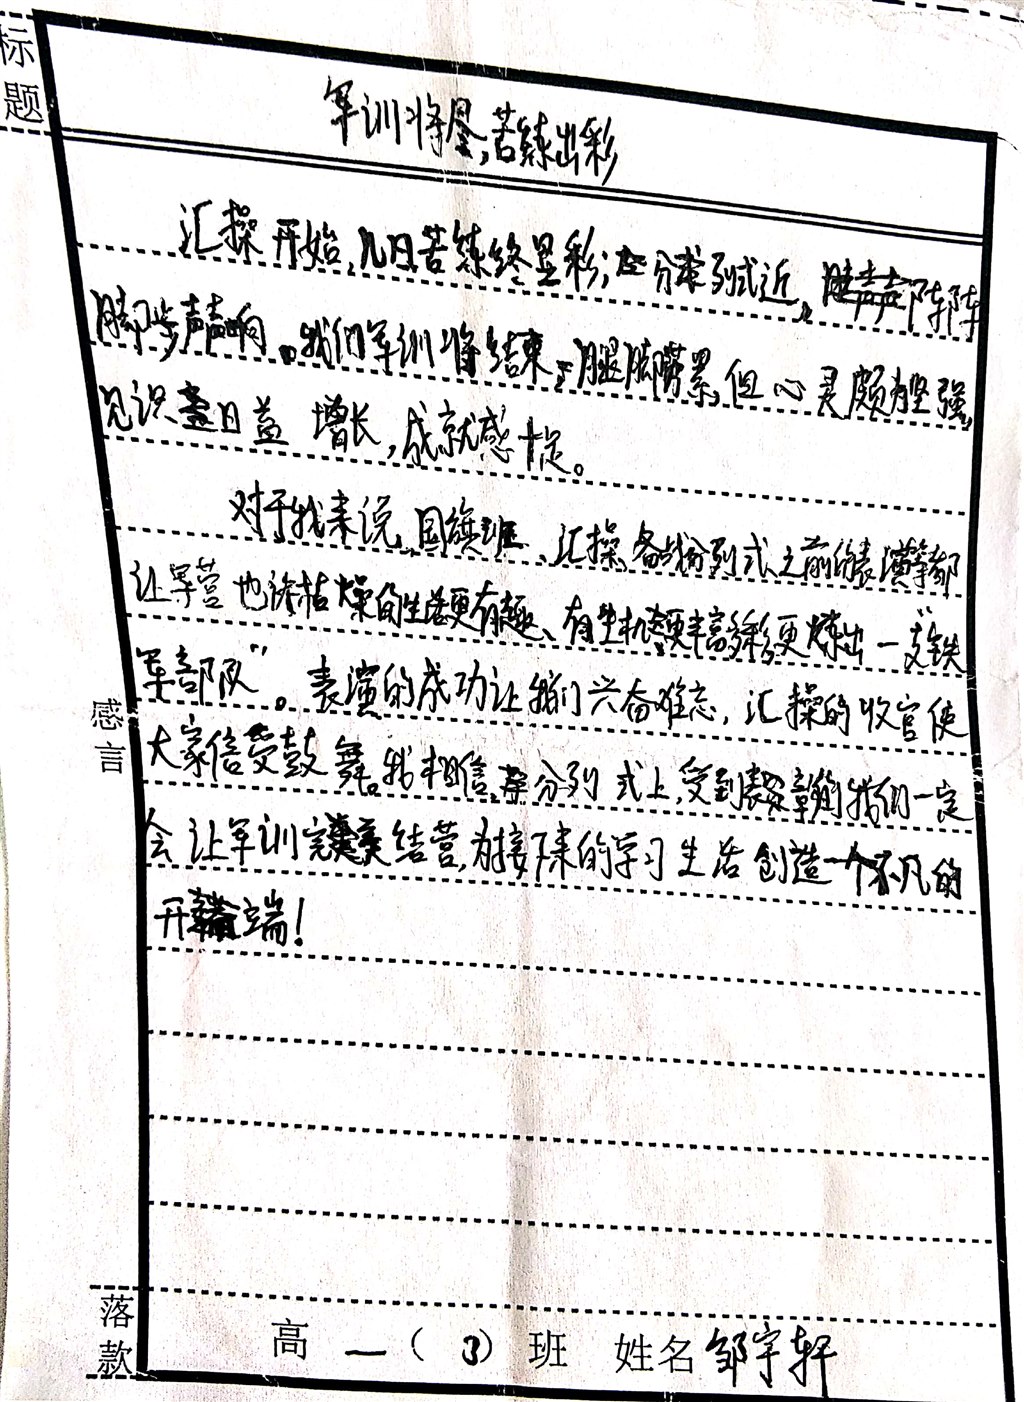 标题
军训将尽,苦练出彩
汇操开始,几日苦练终显彩;分列式近,阵阵
脚步声声响。我们军训将结束,腿脚劳累,但心灵颇坚强,
见识日益增长,成就感十足。
对于我来说,国旗班、汇操、备战分列式之前的表演等都
让军营也许枯燥的生活更有趣、有生机、更丰富多彩,更炼出一支“铁
军部队”。表演的成功让我们兴奋难忘,汇操的收官使
大家倍受鼓舞。我相信,在分列式上,受到表彰的我们一定
会让军训完美结营,为接下来的学习生活创造一个不凡的
开端!
感言
落款
高一(3)班 姓名 邹宇轩